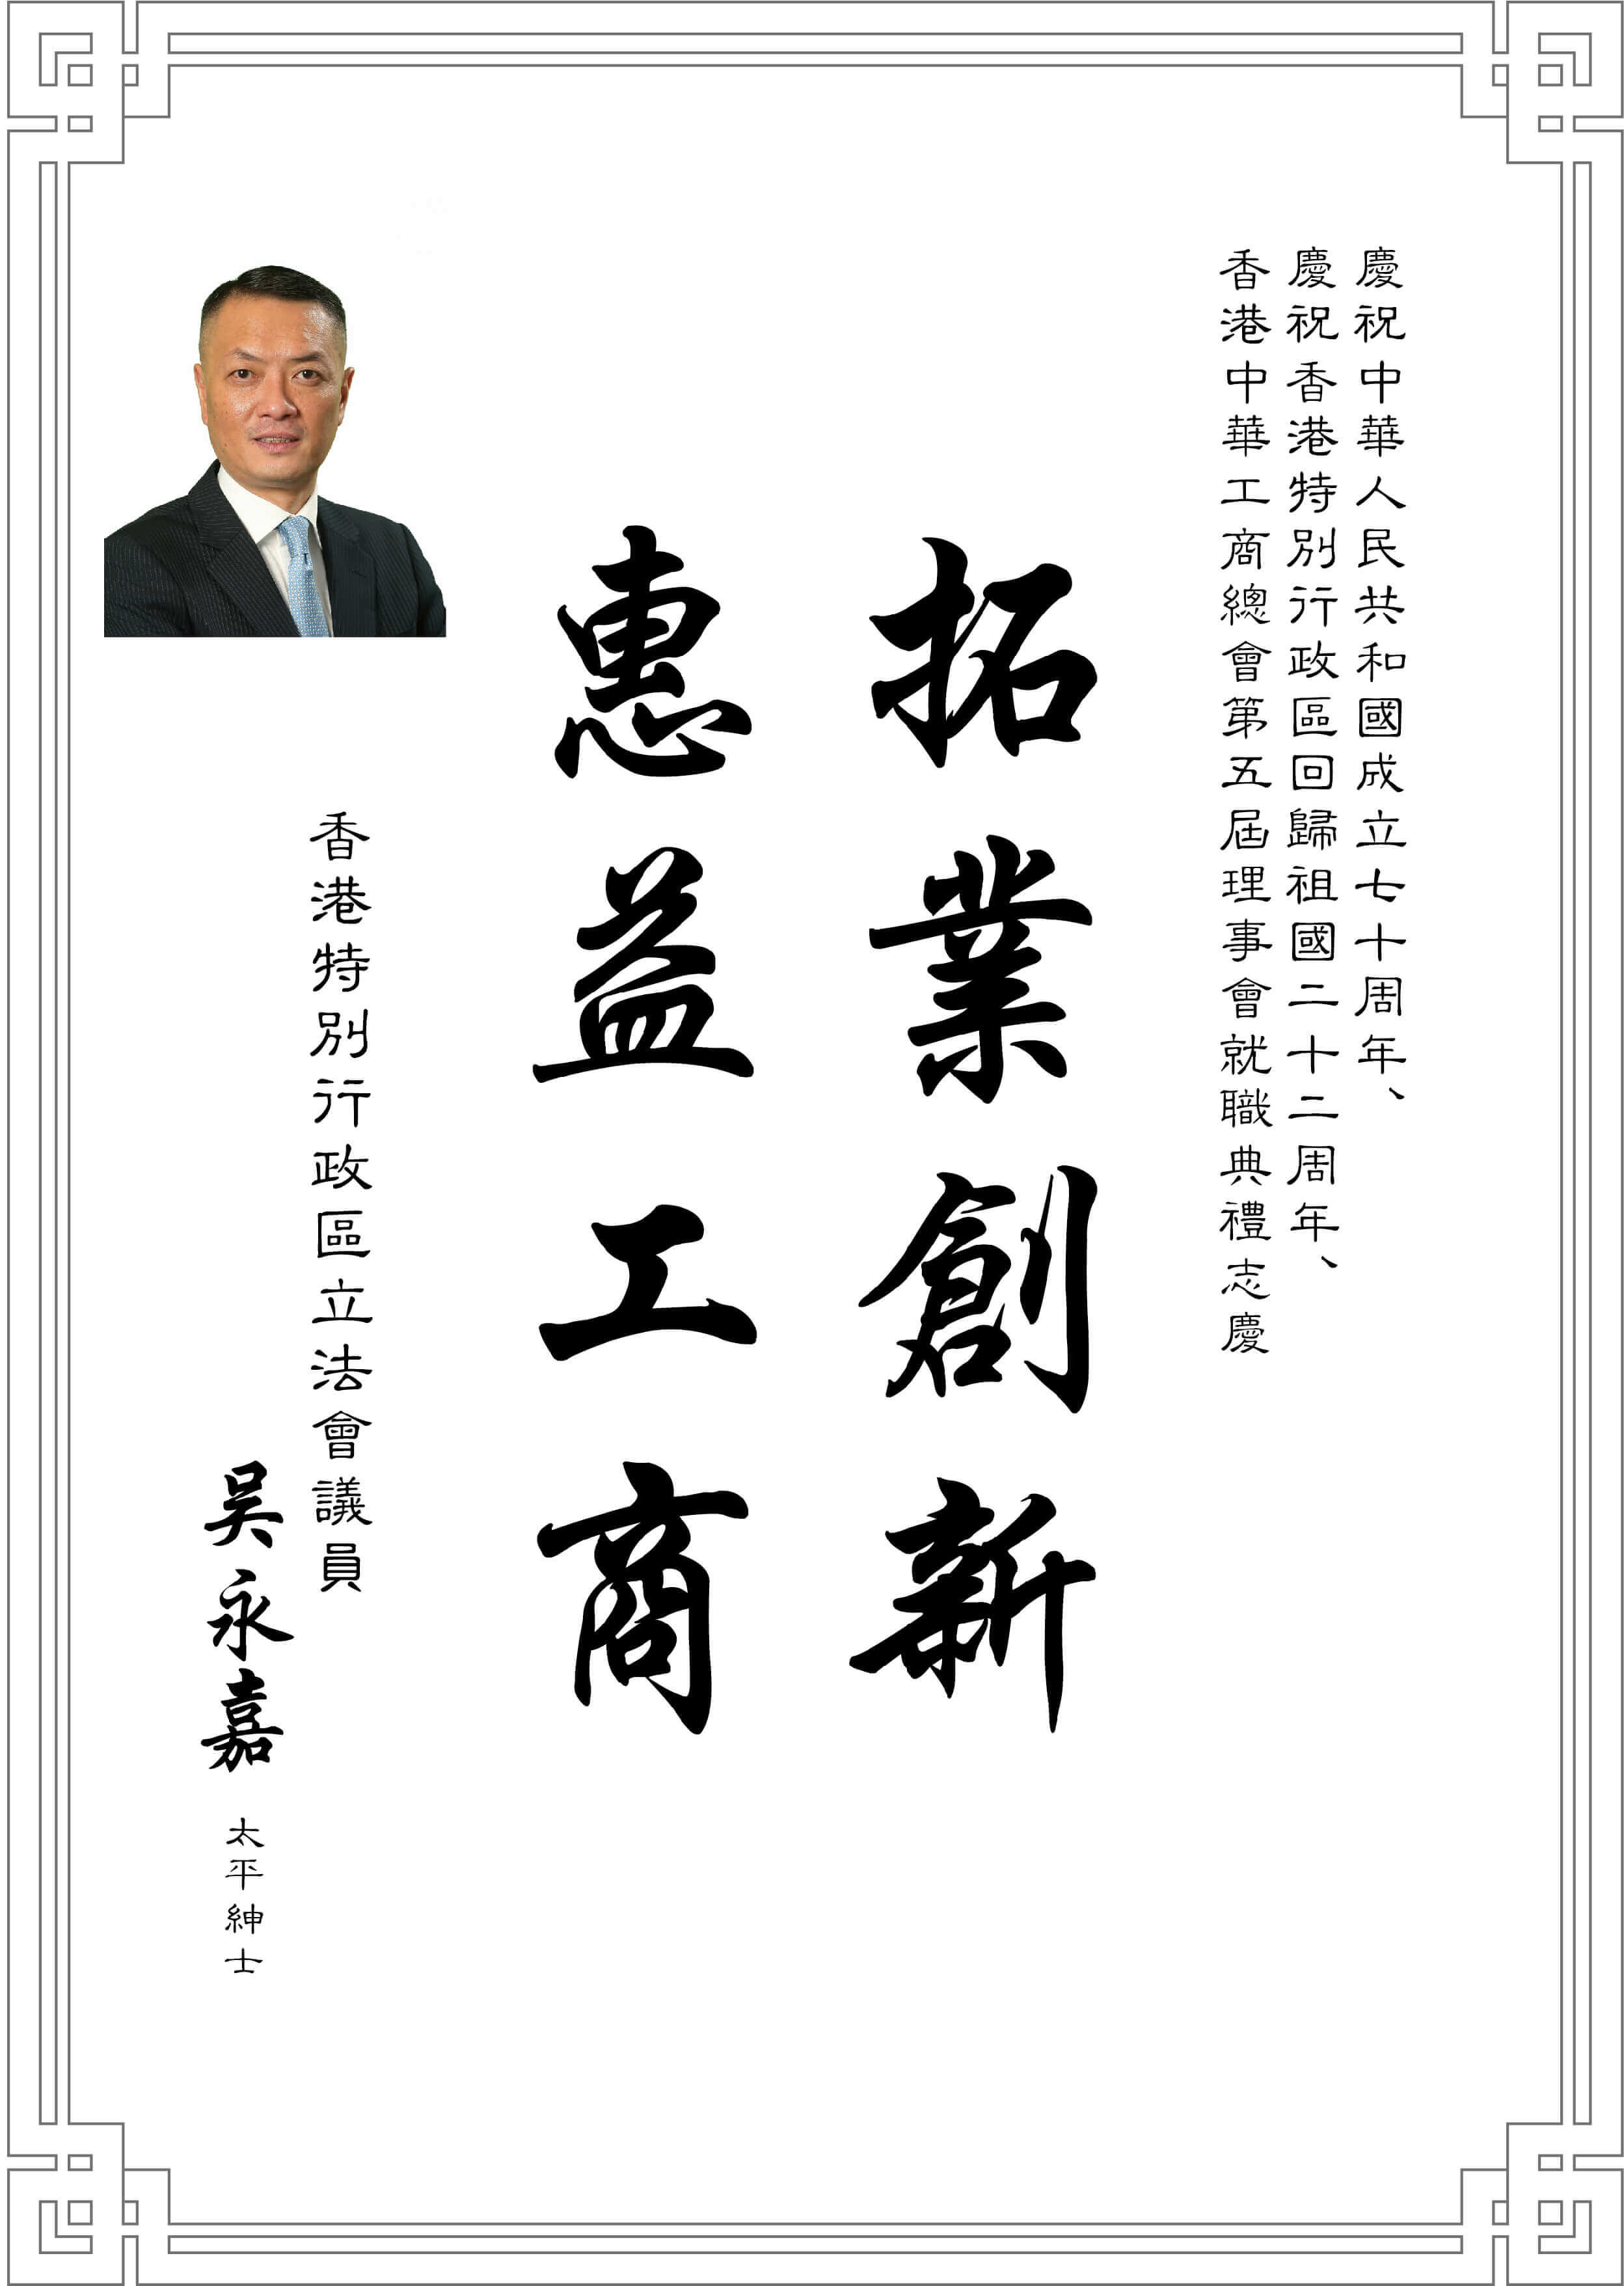 慶祝中華人民共和國成立七十周年、
慶祝香港特別行政區回歸祖國二十二周年、
香港中華工商總會第五屆理事會就職典禮志慶
拓業創新
惠益工商
香港特別行政區立法會議員
吴永嘉 太平紳士